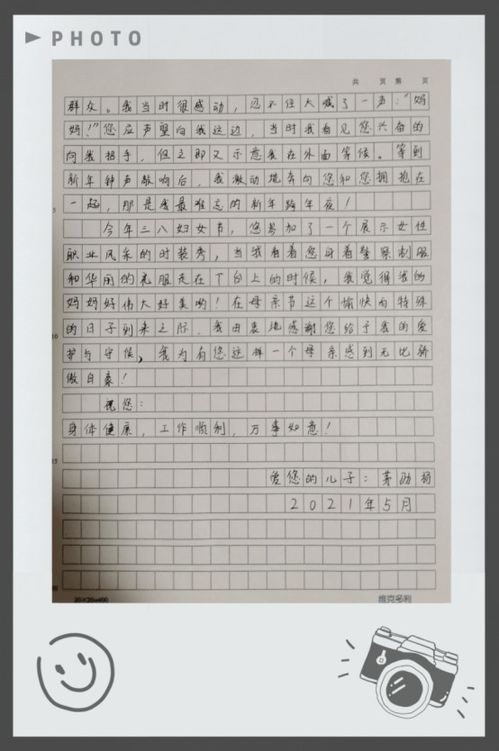 PHOTO
共 页 第 页
群众。我当时很感动,忍不住大喊了一声:“妈
妈!”您应声望向我这边,当时我看见您兴奋的
向我招手,但立即又示意我在外面等候。等到
新年钟声敲响后,我激动地奔向您和您拥抱在
一起,那是我最难忘的新年跨年夜!
今年三八妇女节,您参加了一个展示女性
职业风采的时装秀,当我看着您身着警察制服
和华丽的礼服走在T台上的时候,我觉得我的
妈妈好伟大好美哟!在母亲节这个愉快而特殊
的日子到来之际,我由衷地感谢您给予我的爱
护与守候,我为有您这样一个母亲感到无比骄
傲自豪!
祝您:
身体健康,工作顺利,万事如意!
爱您的儿子:茅
2021年5月
5
10
15
20
20×20=400
维克多利